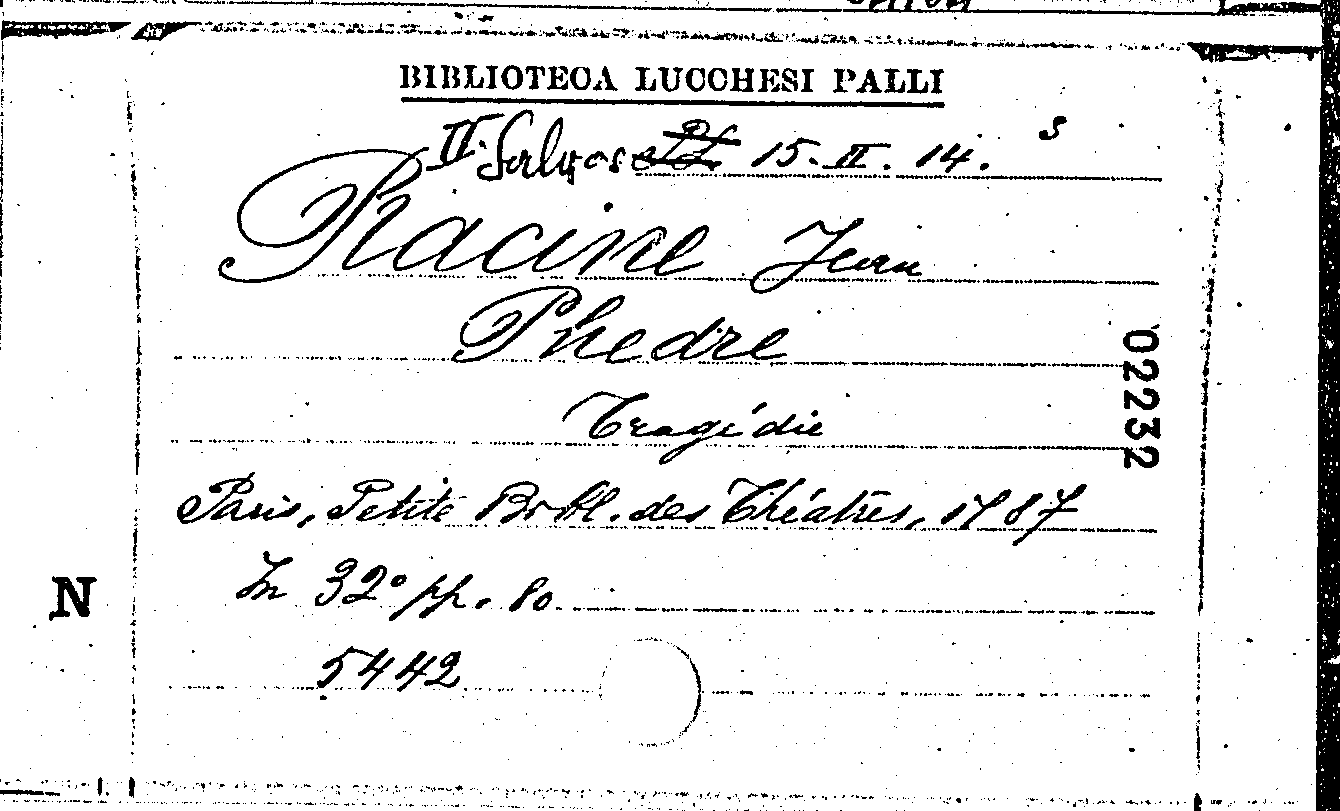 BIBLIOTECA LUCCHESI PALLI
II. 15. II. 14. s
Racine Jean
Phedre
Tragédie
Paris, Petite Bibl. des Théatres, 1787
In 32° pp. 80
5442
02232
N